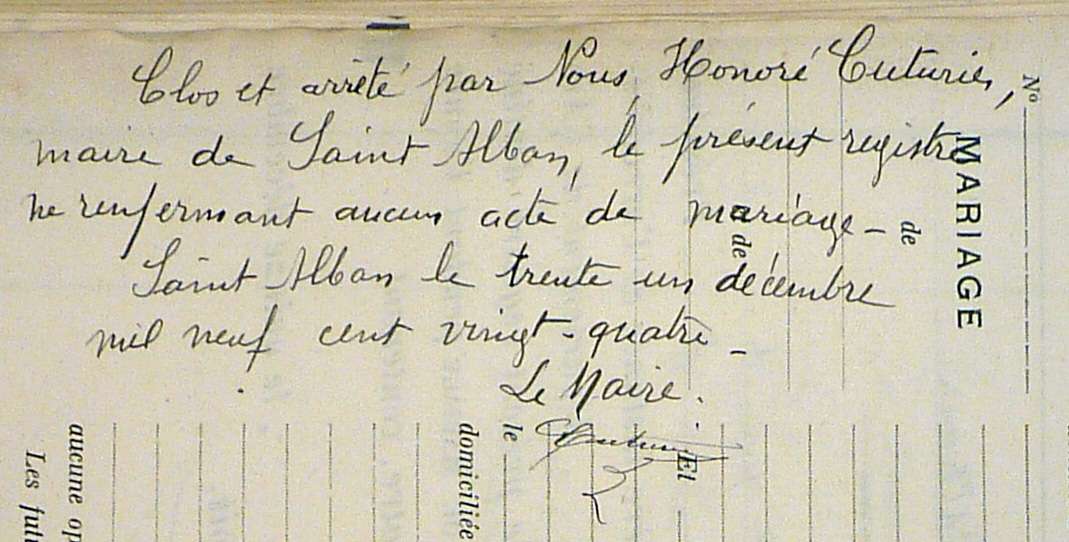 Clos et arrêté par Nous, Honoré Cuturier,
maire de Saint Alban, le présent registre
ne renfermant aucun acte de mariage _
Saint Alban le trente un décembre
mil neuf cent vingt-quatre _
Le Maire.
Cuturier
N°
MARIAGE
de
de
Et
le
domiciliée
aucune op
Les futu